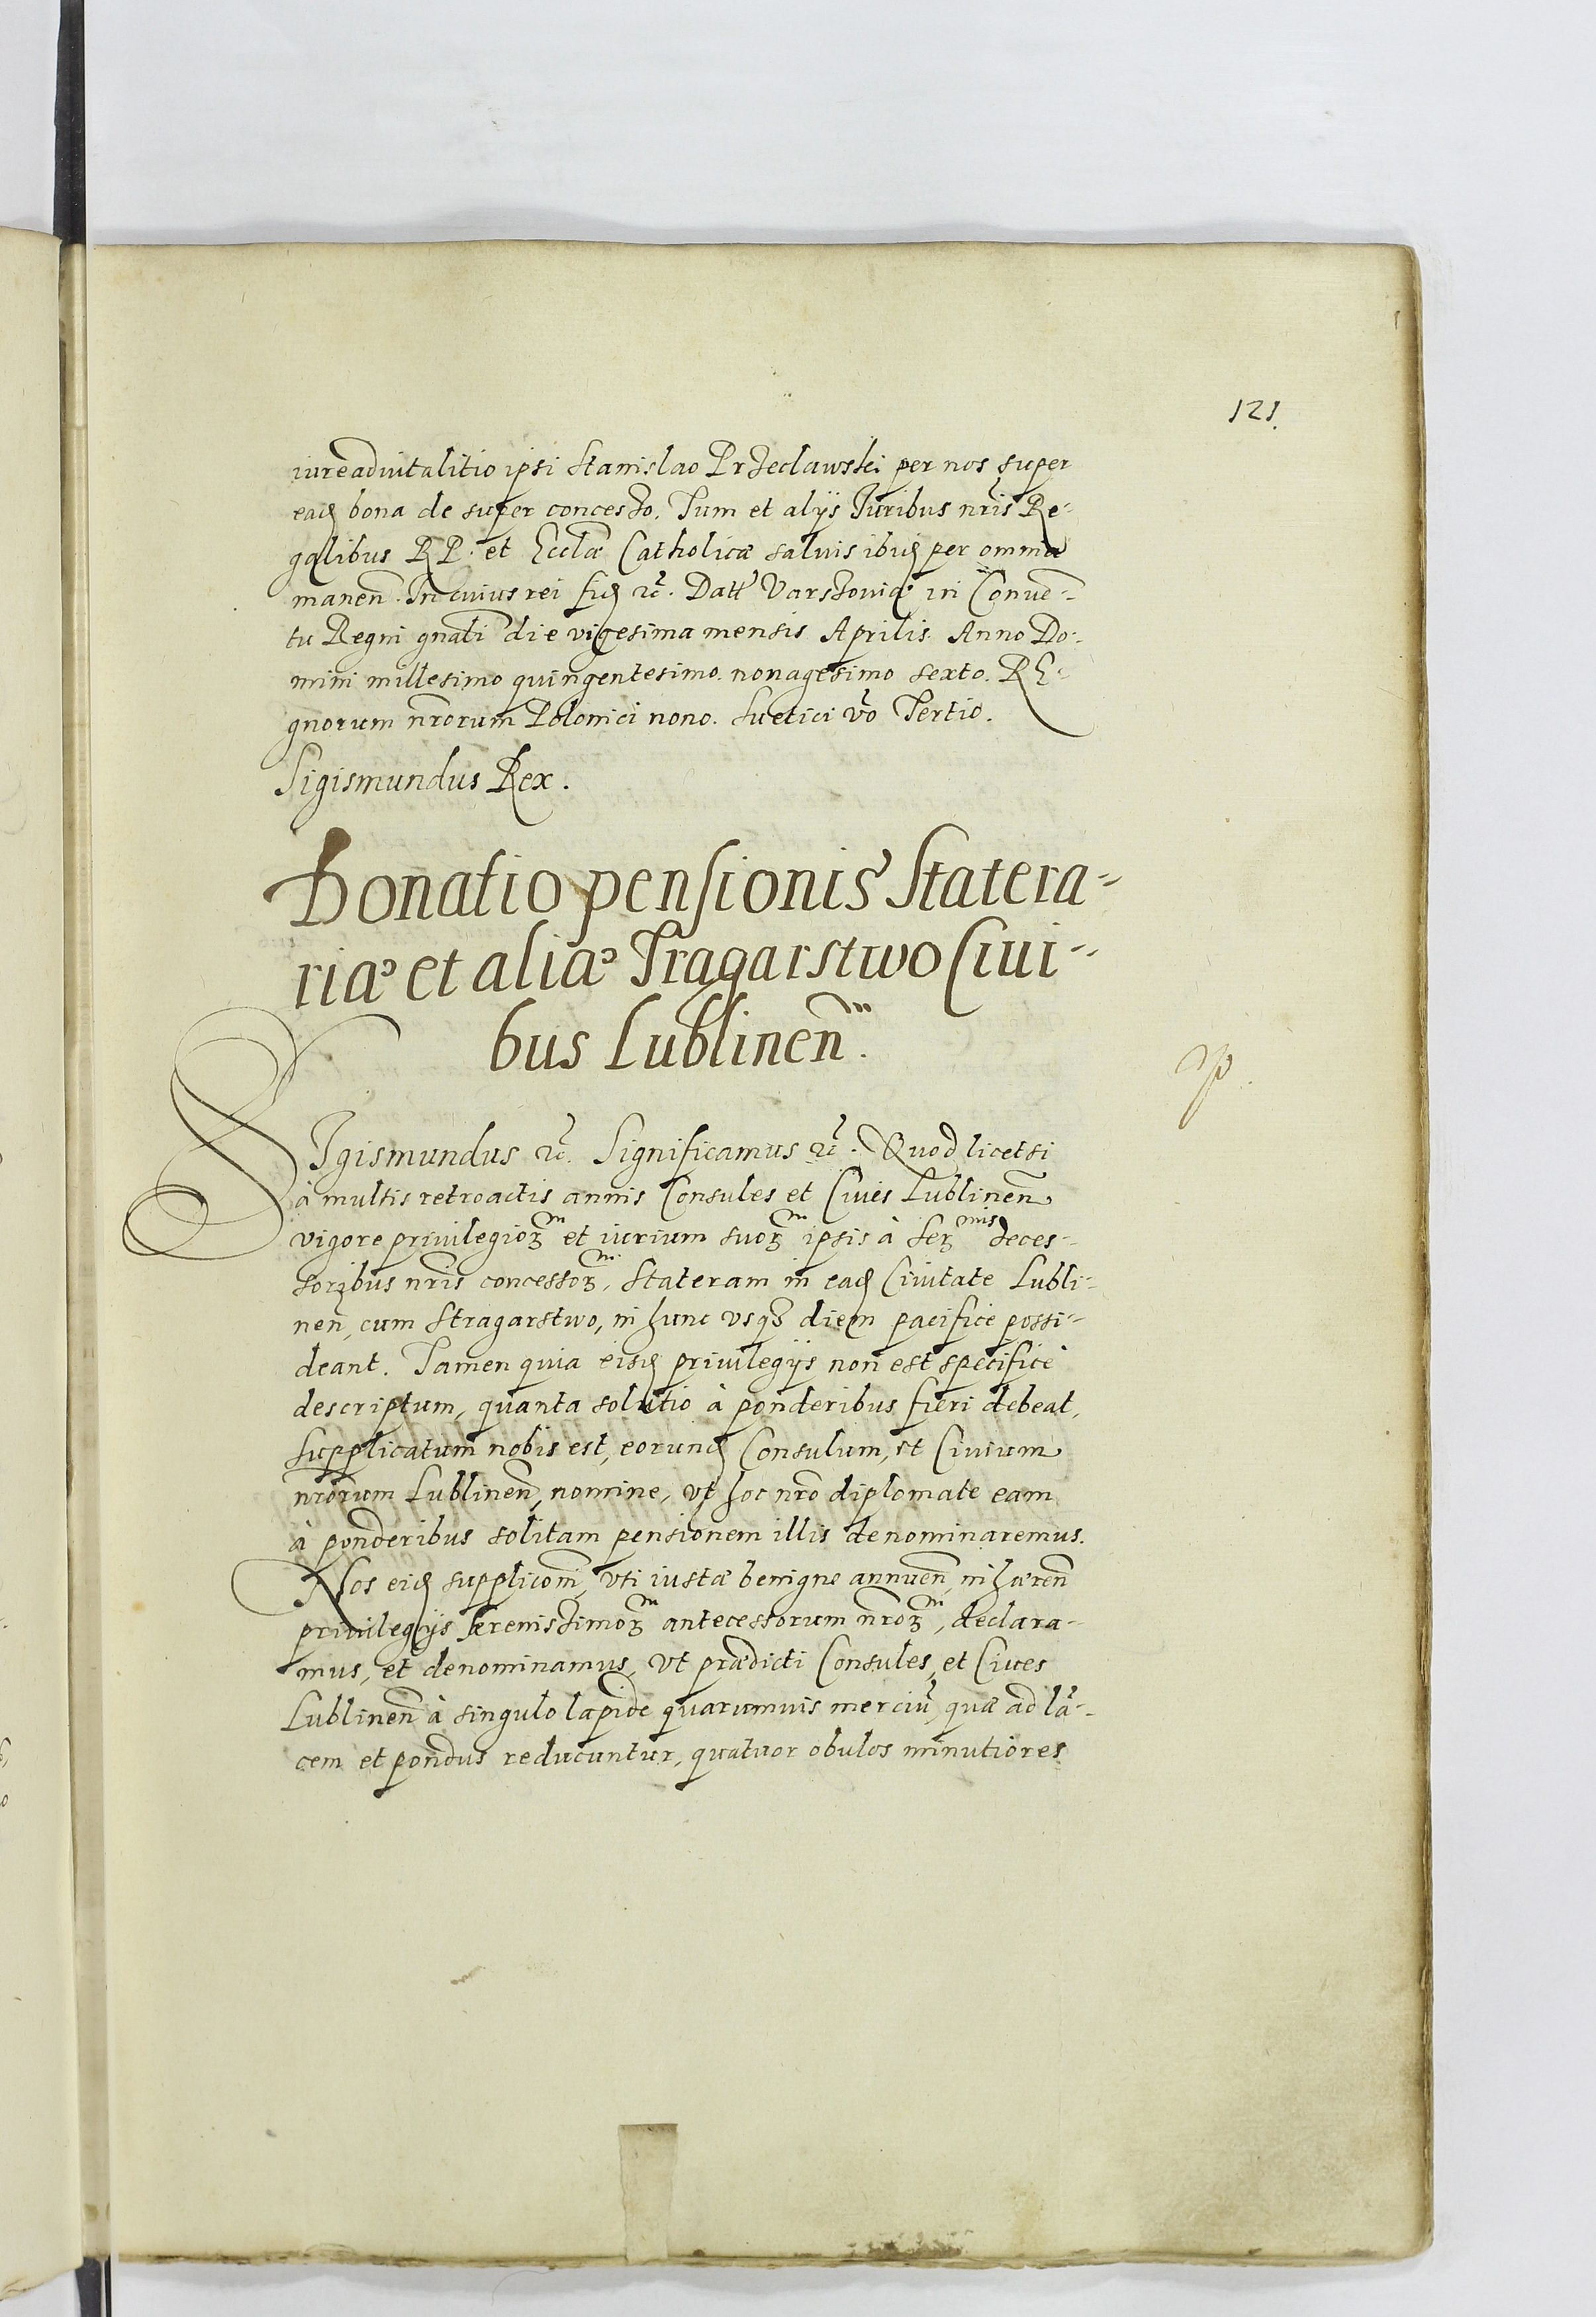 121.
iure aduitalitio ipsi Stanislao Przeclawski per nos super
eadȩ bona de super concesso. Tum et alijs Iuribus nr̃is Re-
galibus RP. et Eccl̃æ Catholicæ saluis ibidȩ per omnia
manen̄. In cuius rei fidȩ ꝛc̃. Datt̃ Varsouiæ in Conue-
tu Regni gñali die vigesima mensis Aprilis Anno Do-
mini millesimo quingentesimo nonagesimo sexto. RE-
gnorum nr̃orum Polonici nono. Suetici ṽo Tertio.
Sigismundus Rex.
Donatio pensionis Statera-
riæ et aliæ Tragarstwo Ciui-
bus Lublinen̄.
SIgismundus ꝛc̃. Significamus ꝛc̃. Quod licet si
à multis retroactis annis Consules et Ciues Lublinen̄
vigore priuilegioꝝ et iurium suoꝝ ipsis à Ser. mis deces-
soribus nr̃is concessoꝝ, Stateram in eadȩ Ciuitate Lubli-
nen̄, cum Stragarstwo, in hunc usqꝫ diem pacifice possi-
deant. Tamen quia eisdȩ priuilegijs non est specificè
descriptum, quanta solutio à ponderibus fieri debeat,
Supplicatum nobis est, eorundȩ Consulum, et Ciuium
nr̃orum Lublinen̄, nomine, vt hoc nr̃o diplomate eam
à ponderibus solitam pensionem illis denominaremus.
Nos eidȩ supplicōni, vti iustæ benigne annuen̄, inhæren̄
priuilegijs Serenissimoꝝ antecessorum nr̃oꝝ, declara-
mus, et denominamus, Vt prædicti Consules, et Ciues
Lublinen̄ à singulo lapide quarumuis merciū, quæ ad lā-
cem et pondus reducuntur, quatuor obulos minutiores